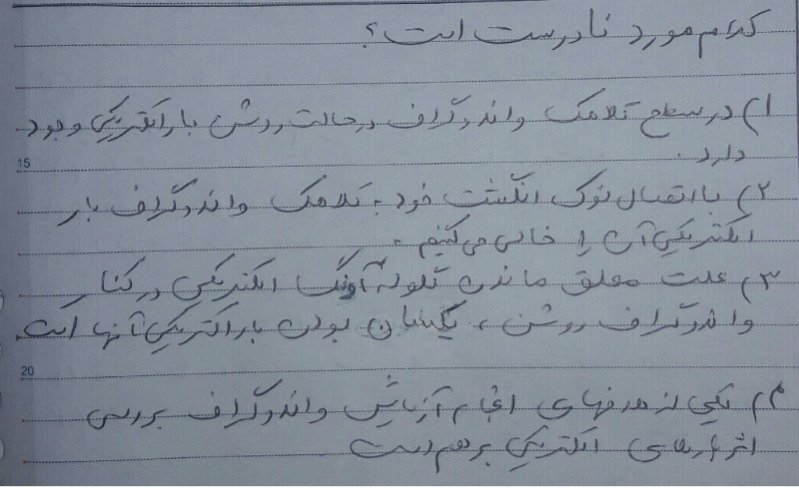 کدام مورد نادرست است؟
۱) در سطح کلاهک واندوگراف در حالت روشن بار الکتریکی وجود
15
دارد.
۲) با اتصال نوک انگشت خود به کلاهک واندوگراف بار
الکتریکی آن را خالی می‌کنیم.
۳) علت معلق ماندن گلوله آونگ الکتریکی در کنار
واندوگراف روشن، یکسان بودن بار الکتریکی آنها است.
20
۴) یکی از هدفهای انجام آزمایش واندوگراف بررسی
اثر بارهای الکتریکی بر هم است